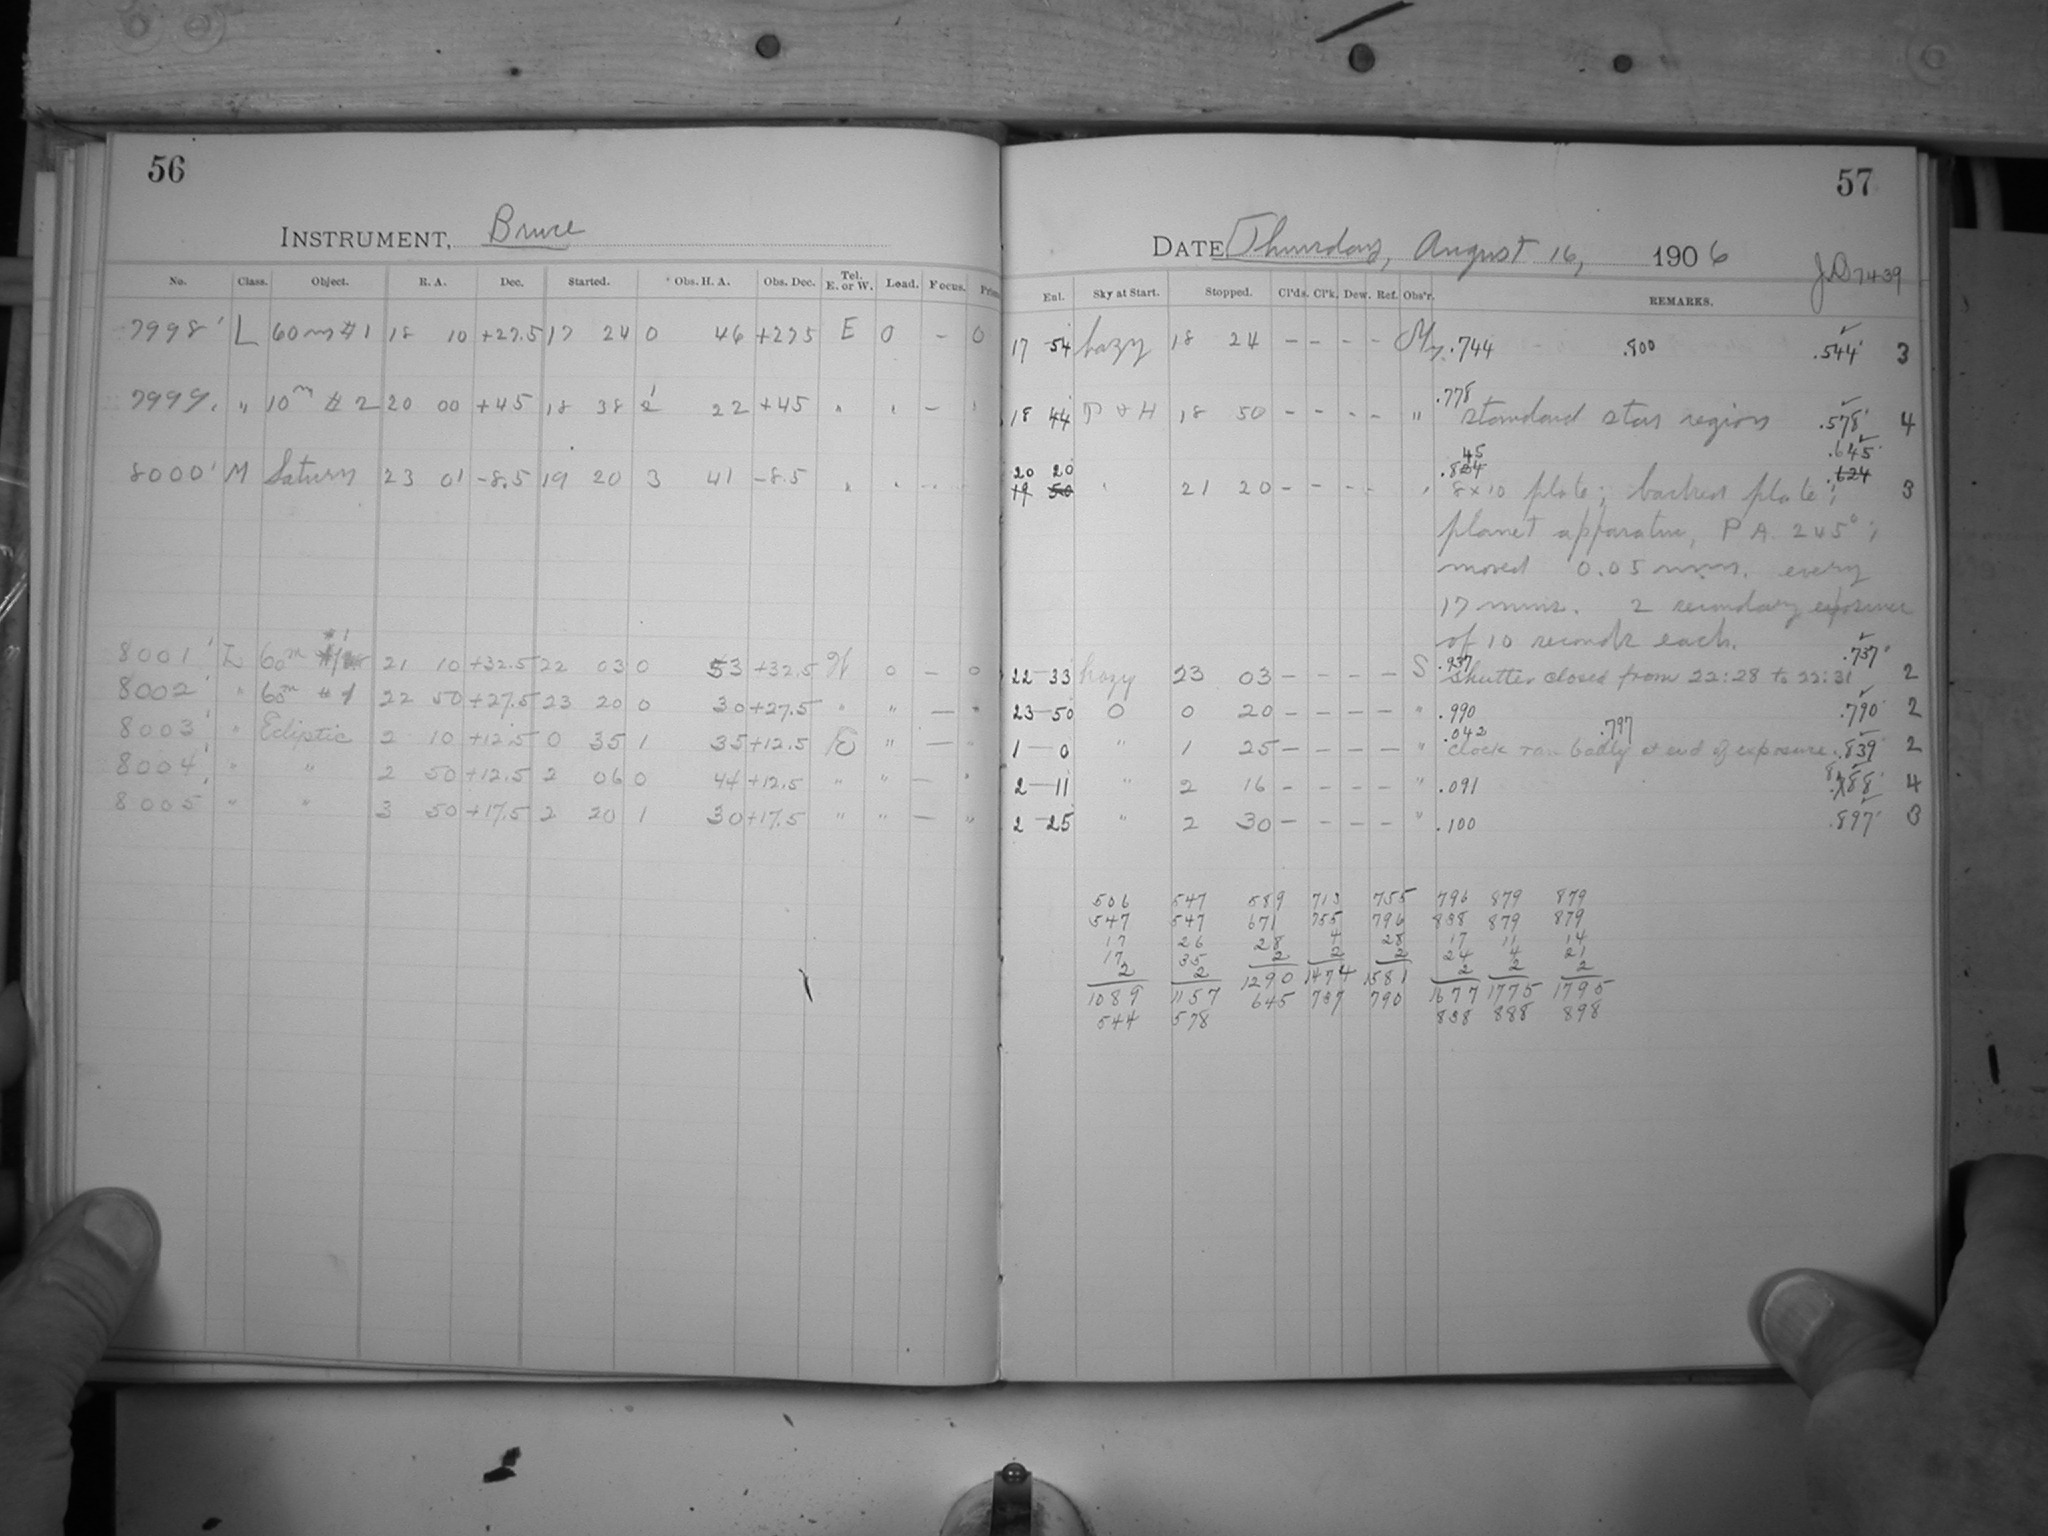 56
INSTRUMENT, Bruce
No. Class. Object. R. A. Dec. Started. Obs. H. A. Obs. Dec. Tel. E. or W. Load. Focus.
7998 L 60 m #1 18 10 +27.5 17 24 0 46 +275 E 0 - 0
7999 " 10m #2 20 00 +45 18 38 22 +45 " " - "
8000 M Saturn 23 01 -8.5 19 20 3 41 -8.5 " "
8001 L 60m 21 10 +32.5 22 03 0 53 +32.5 W 0 - 0
8002 " 60m #1 22 50 +27.5 23 20 0 30 +27.5 " " - "
8003 " Ecliptic 2 10 +12.5 0 35 1 35 +12.5 E " - "
8004 " " 2 50 +12.5 2 06 0 44 +12.5 " " - "
8005 " " 3 50 +17.5 2 20 1 30 +17.5 " " - "
57
DATE Thursday, August 16, 1906
JD 7439
Enl. Sky at Start. Stopped. Cl'ds. Cl'k. Dew. Ref. Obs'r. REMARKS.
17 54 hazy 18 24 - - - - M .744 .800 .544 3
.778
18 44 P & H 18 50 - - - - " standard star region .578 4
45 .645
20 20 .824 .624
19 50 " 21 20 - - - - " 8 x 10 plate; backed plate; 3
planet apparatus, P A. 245°;
moved 0.05 mm. every
17 mins. 2 secondary exposures
of 10 seconds each.
.937 .737
22 33 hazy 23 03 - - - - S Shutter closed from 22:28 to 22:31 2
23 50 0 0 20 - - - - " .990 .790 2
.042 .797
1 0 " 1 25 - - - - " Clock ran badly at end of exposure .839 2
2 11 " 2 16 - - - - " .091 88 4
2 25 " 2 30 - - - - " .100 .897 3
506 547 589 713 755 796 879 879
547 547 671 755 796 838 879 879
17 26 28 4 28 17 11 14
17 35 2 2 2 24 4 21
2 2 1290 1474 1581 2 2 2
1089 1157 645 737 790 1677 1775 1795
544 578 838 888 898